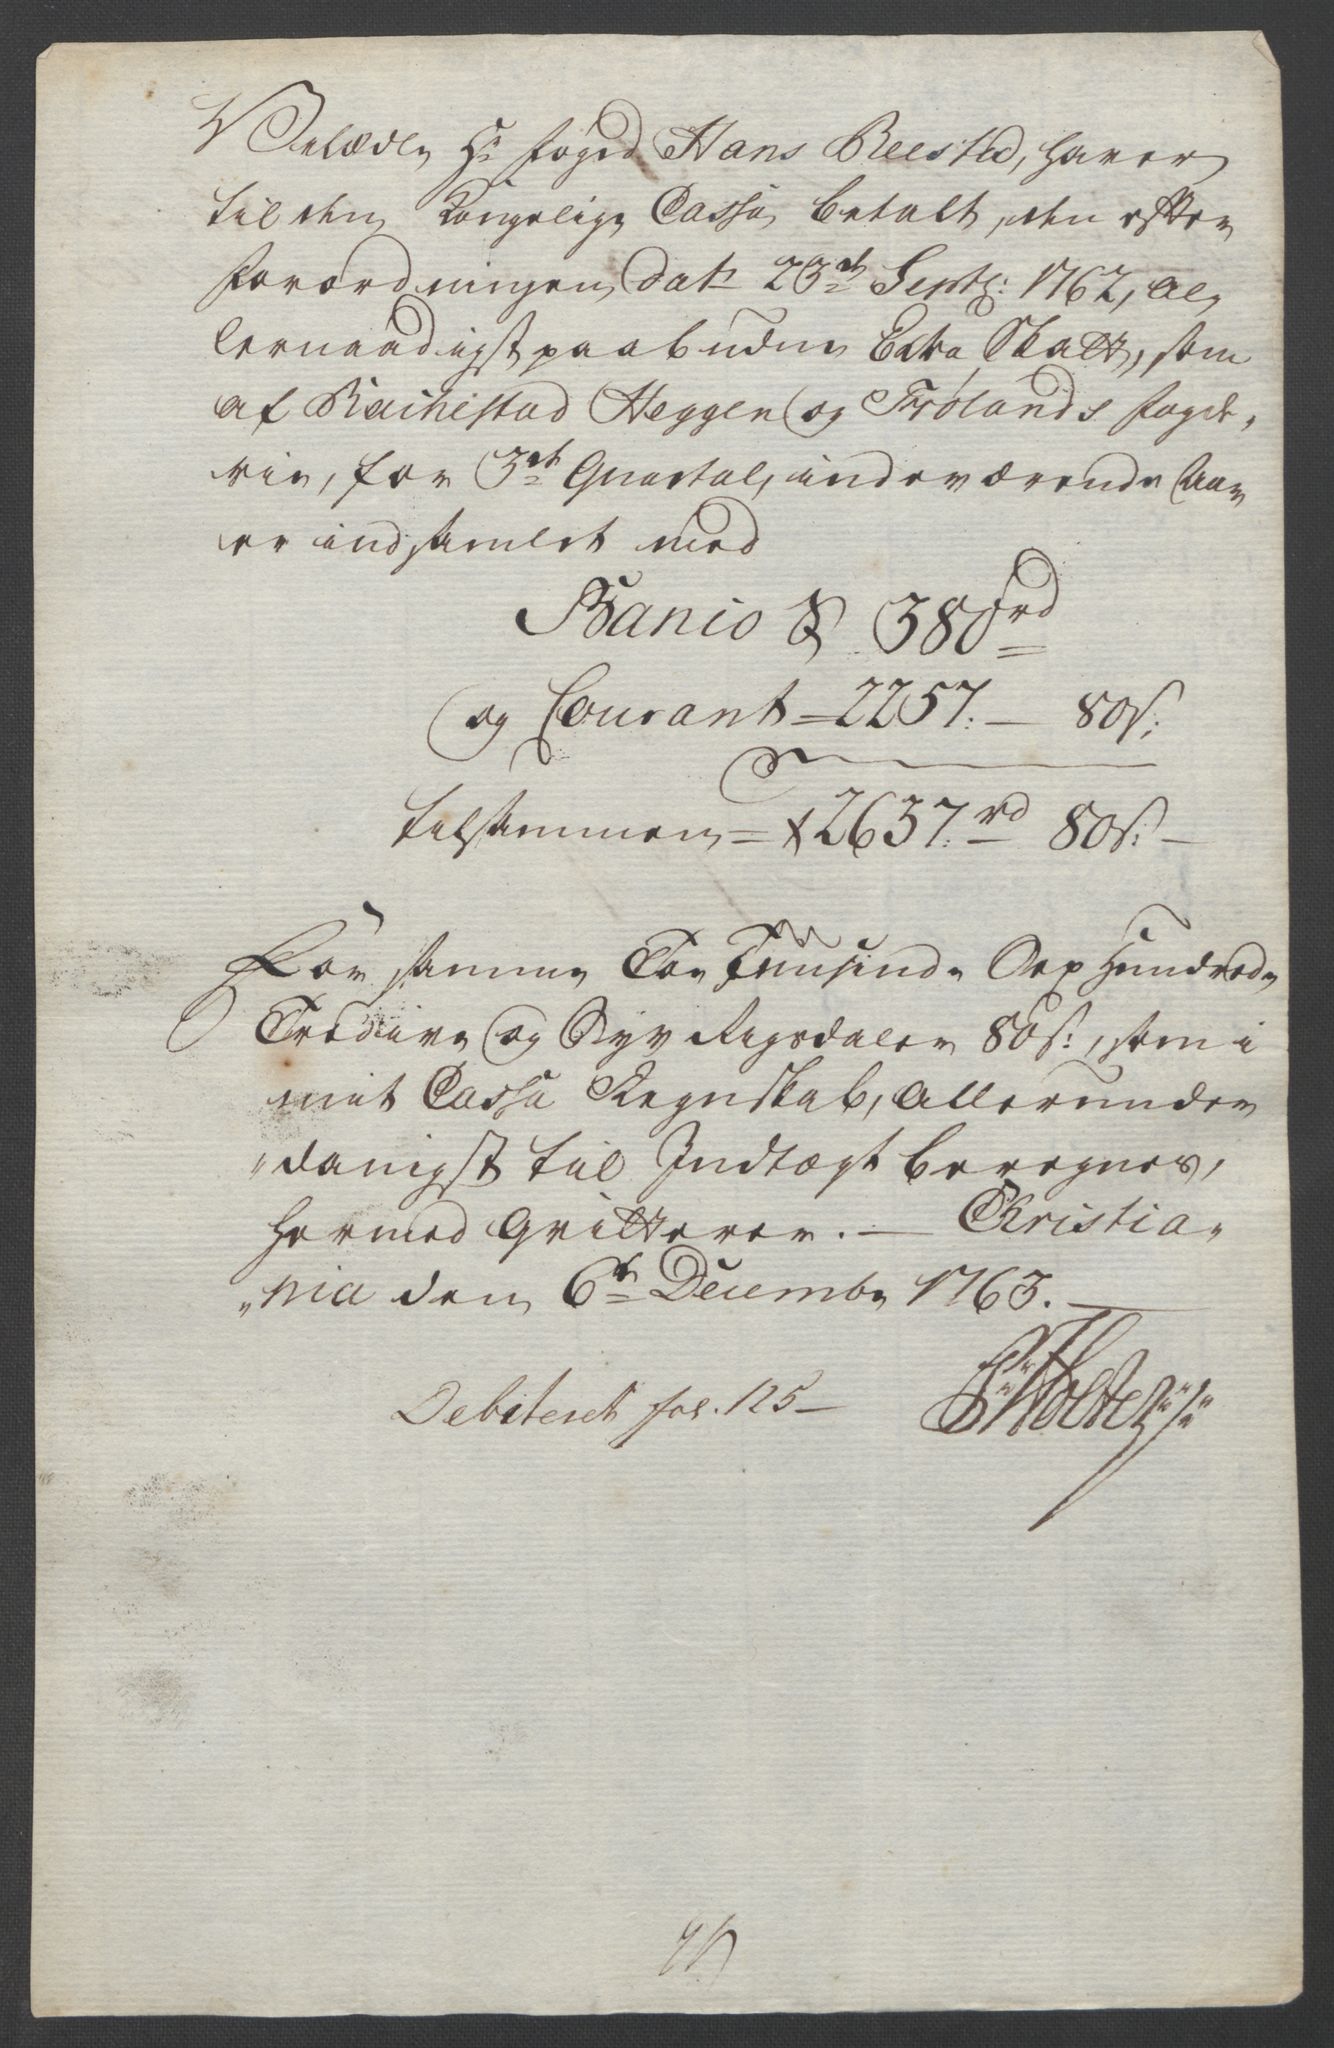 Velædle Hr: Foged Hans Beested, haver
til den Kongelige Cassa betalt, den efter
Forordningen dat: 23de Septbr: 1762, al,
lernaadigst paabudne Extra Skatt, som
af Rachestad Heggen og Frølands Fogde,
rie, for 3de Quartal, indeværende Aar
er indsamlet med
Banco S 380rd
og Courant = 2257. — 80s:
tilsammen = 2637.rd 80s: —
For samme Toe Tuusinde Sex Hundrede
Tredive og Syv Rigsdaler 80s:, som i
mit Cassa Regnskab, Allerunder
„danigst til Indtægt beregnes,
hermed qvitterer. — Christia,
„nia den 6te Decembr 1763. —
Debiteret fol. 125 —
Holter